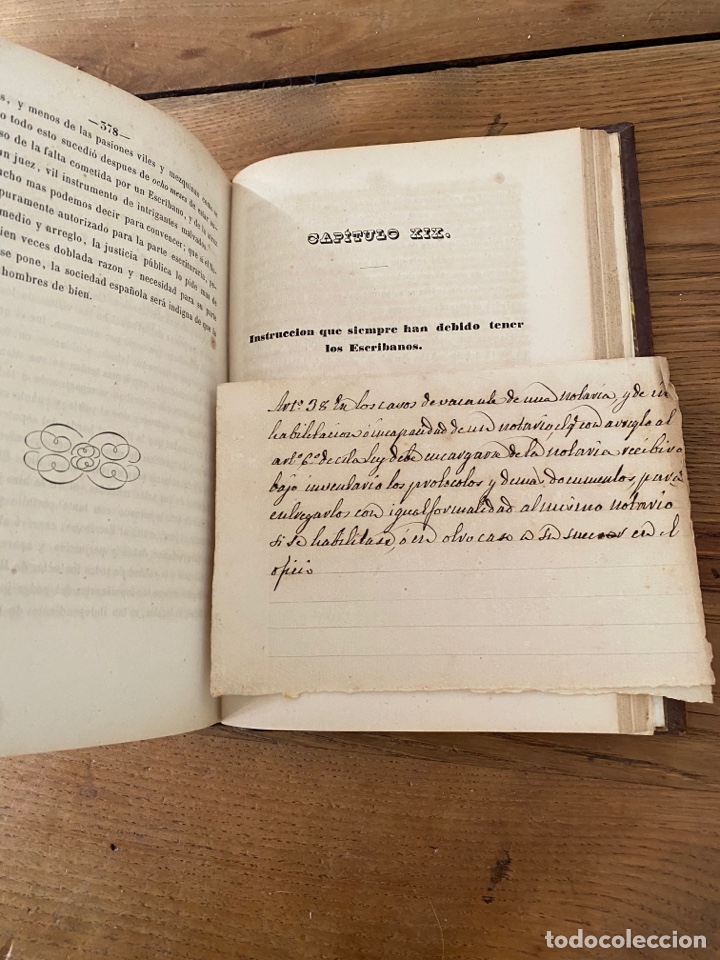 —378—
s, y menos de las pasiones viles y mezquinas como se
o todo esto sucedió despues de ocho meses de estar
so de la falta cometida por un Escribano, y de la
n juez, vil instrumento de intrigantes malvados.
ucho mas podemos decir para convencer; que si el
puramente autorizado para la parte escrituraria,
medio y arreglo, la justicia pública lo pide mas de
ien veces doblada razon y necesidad para su parte
se pone, la sociedad española será indigua de que la
hombres de bien.
CAPÍTULO XIX.
Instruccion que siempre han debido tener
los Escribanos.
Artº. 38 En los casos de vacante de una notaría, y de in
habilitacion ó incapacidad de un notario, el q. con arreglo al
artº. 6º de esta Ley debe encargarse de la notaria recibira
bajo inventario los protocolos y demas documentos, para
entregarlos con igual formalidad al mismo notario
si se habilitase, ó en otro caso a su sucesor en el
oficio
todocoleccion
todocoleccion.net